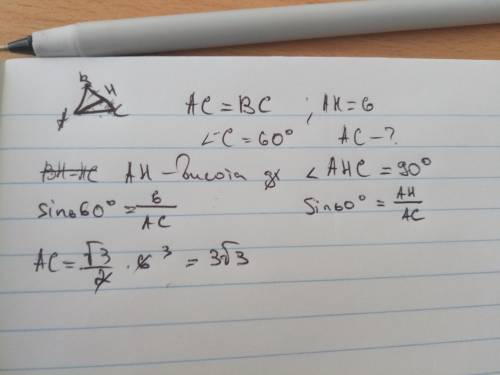 B
H
A C
AC = BC ; AH = 6
∠C = 60° AC - ?
BH = HC AH - висота ∠AHC = 90°
sin 60° = 6/AC sin 60° = AH/AC
AC = √3/2 · 6 3 = 3√3